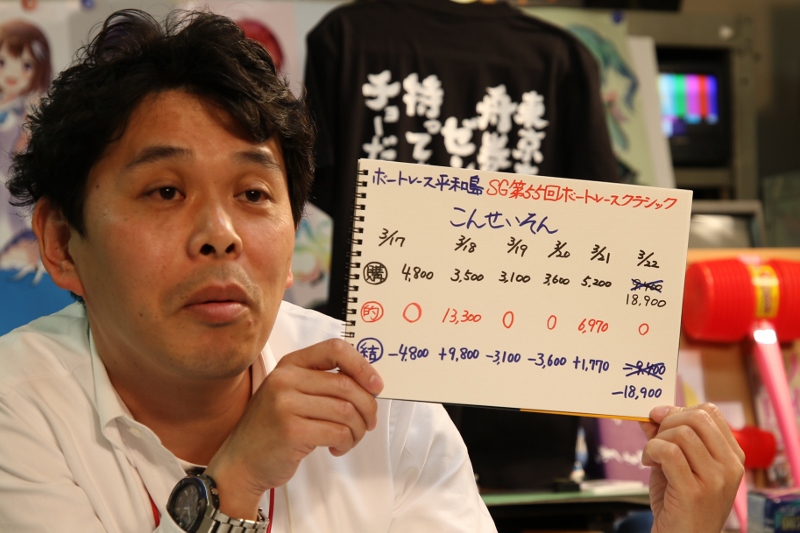 東京
舟券
ぜ
待って
チュー
ボートレース平和島 SG第55回ボートレースクラシック
こんせいそん
3/17 3/18 3/19 3/20 3/21 3/22
購 4,800 3,500 3,100 3,600 5,200 9,400
18,900
的 0 13,300 0 0 6,970 0
結 -4,800 +9,800 -3,100 -3,600 +1,770 -9,400
-18,900